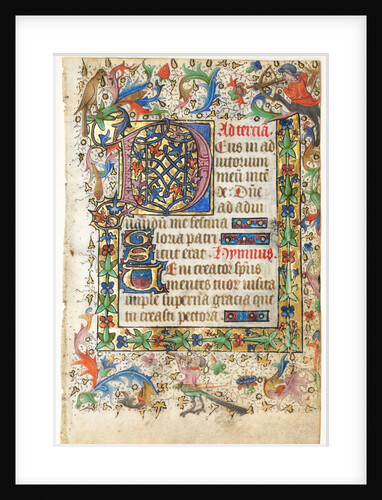 Ad tercia.
Deus in ad
iutorium
meū inte
de: Dñe
ad adiu
uandū me festina
Gloria patri
Sicut erat. Hymnus.
Veni creator spūs
mentes tuor uisita
imple superna gracia que
tu creasti pectora